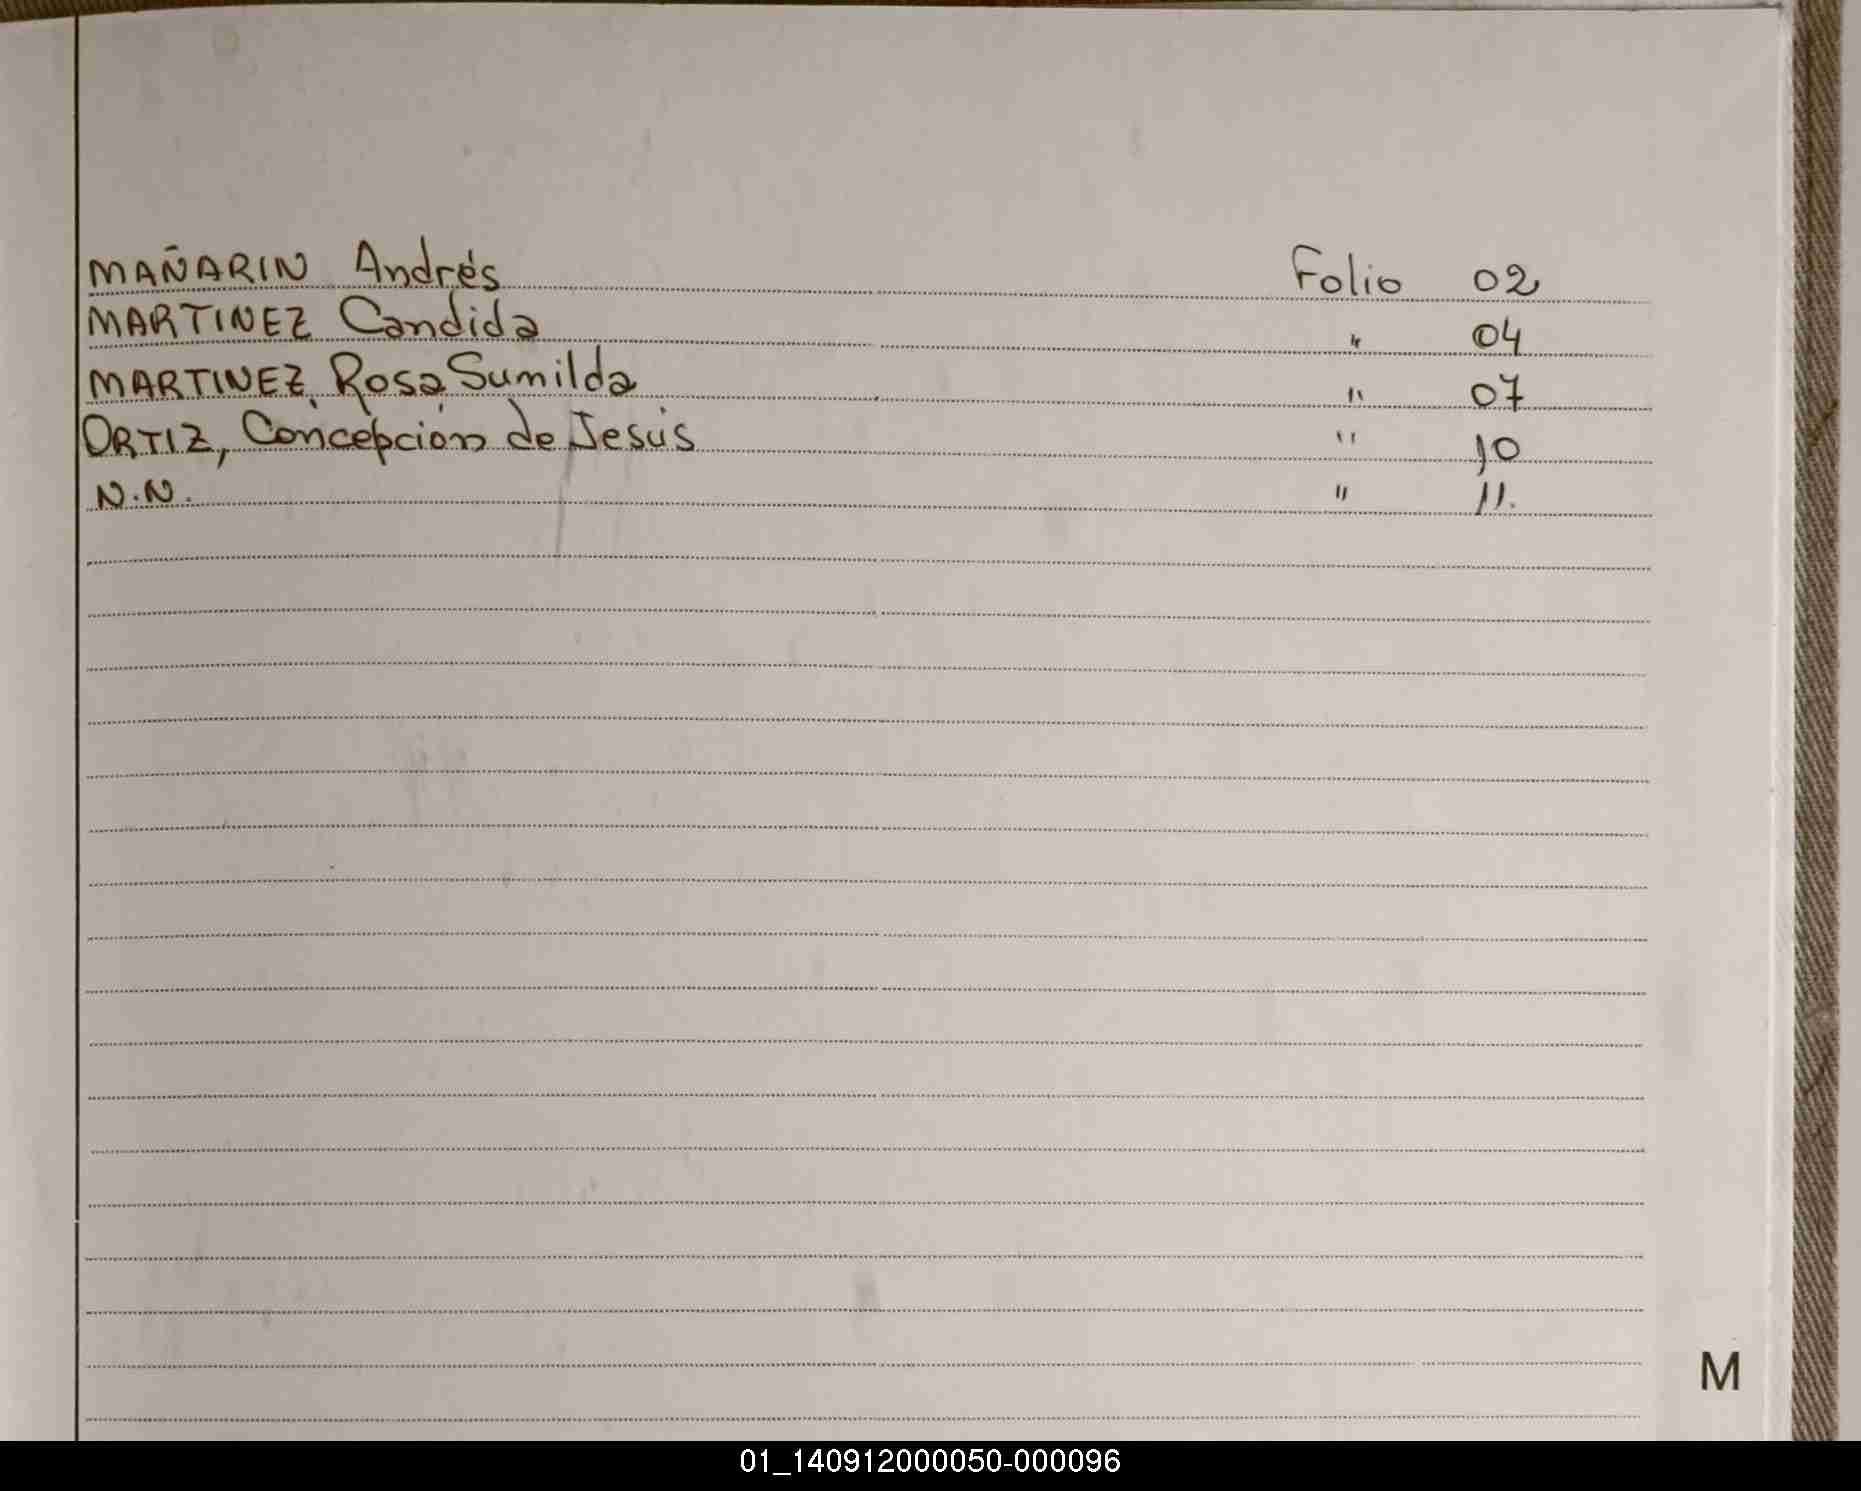 MAÑARIN Andrés Folio 02
MARTINEZ Candida " 04
MARTINEZ, Rosa Sumilda " 07
ORTIZ, Concepción de Jesús " 10
N.N. " 11.
M
01_140912000050-000096